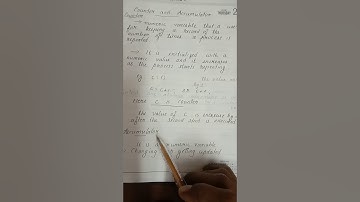 Counter and Accumulator
Counter
→ numeric variable that is used
for keeping a record of the
number of times a process is
repeated
→ It is initialized with a
numeric value and it increases
as the process starts repeating
the value
C = C+1 or
Here C is counter
the value of C is increase by
after the second part is executed
Accumulator
is a numeric variable
changing or getting updated